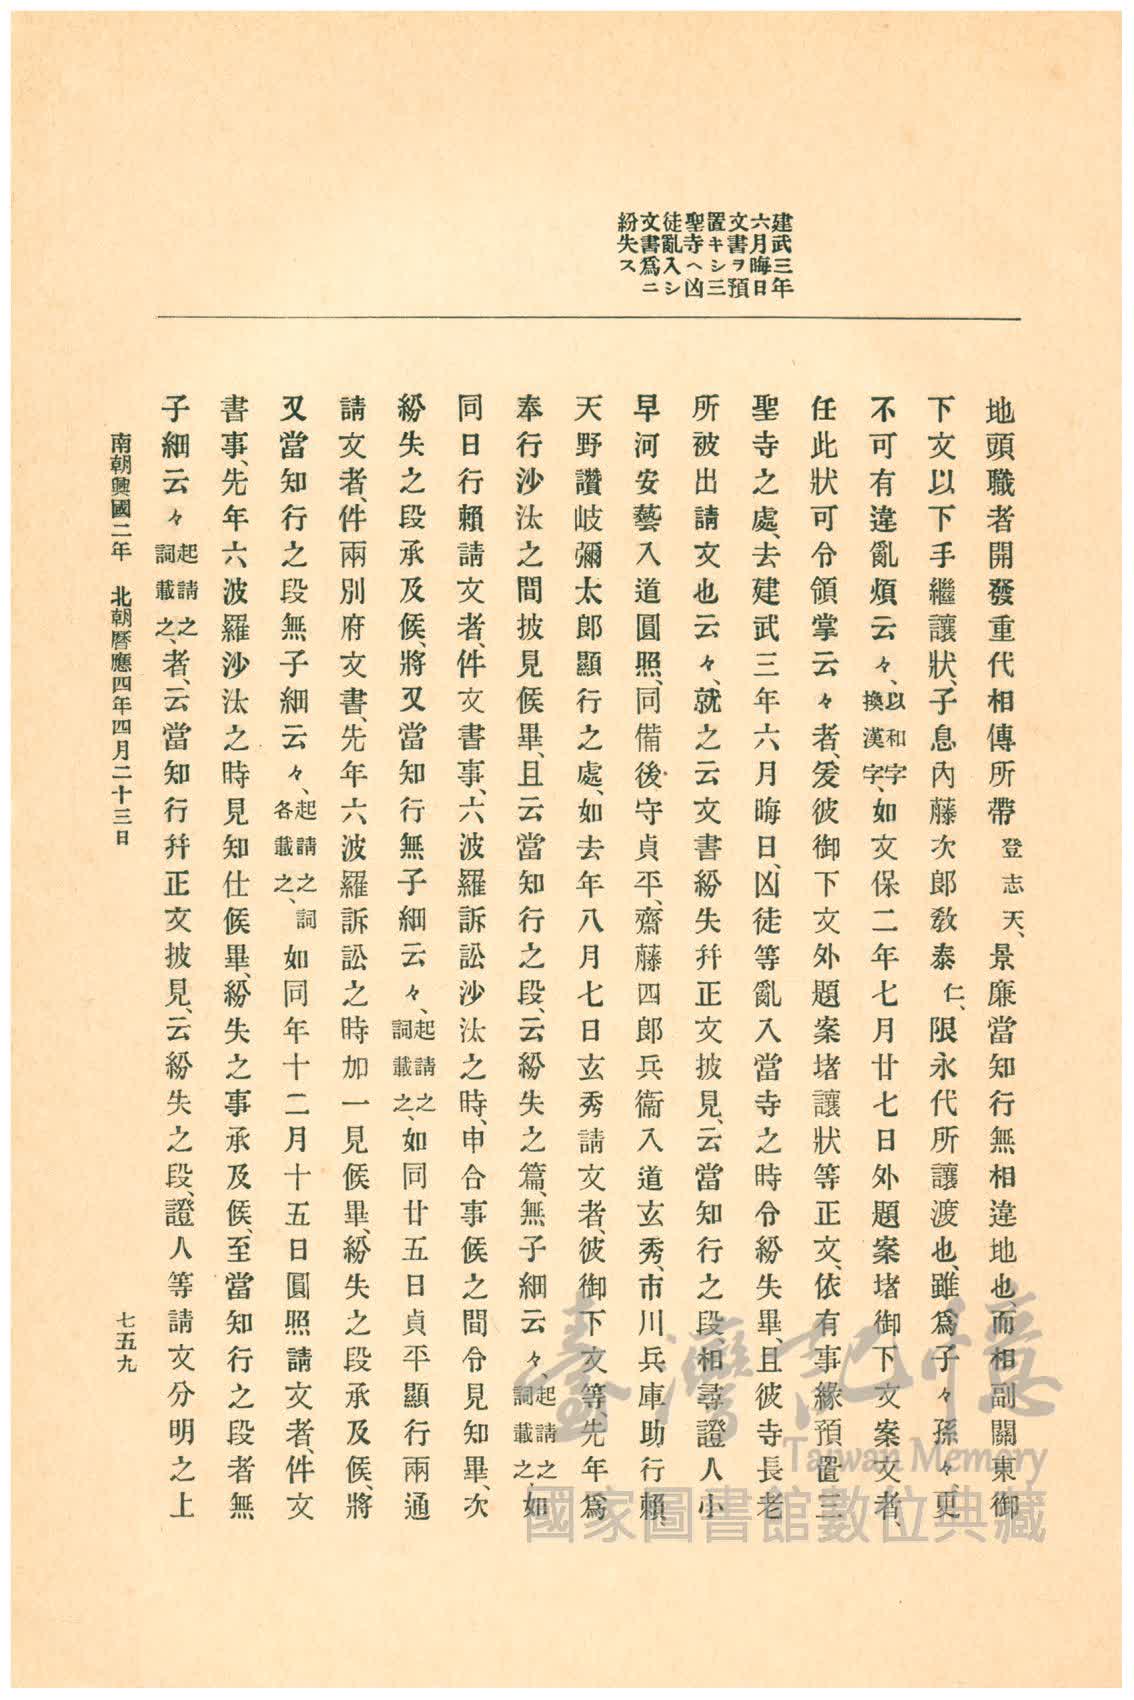 建武三年
六月晦日
文書ヲ預
置キシ三
聖寺ヘ凶
徒亂入シ
文書爲ニ
紛失ス
地頭職者開發重代相傳所帶登志天、景廉當知行無相違地也、而相副關東御
下文以下手繼讓狀、子息內藤次郎敎泰仁、限永代所讓渡也、雖爲子々孫々、更
不可有違亂煩云々、以和字換漢字、如文保二年七月廿七日外題案堵御下文案文者、
任此狀可令領掌云々者、爰彼御下文外題案堵讓狀等正文、依有事緣預置三
聖寺之處、去建武三年六月晦日、凶徒等亂入當寺之時令紛失畢、且彼寺長老
所被出請文也云々、就之云文書紛失幷正文披見、云當知行之段、相尋證人小
早河安藝入道圓照、同備後守貞平、齋藤四郎兵衞入道玄秀、市川兵庫助行賴、
天野讚岐彌太郎顯行之處、如去年八月七日玄秀請文者、彼御下文等、先年爲
奉行沙汰之間披見候畢、且云當知行之段、云紛失之篇、無子細云々、起請之詞載之、如
同日行賴請文者、件文書事、六波羅訴訟沙汰之時、申合事候之間令見知畢、次
紛失之段承及候、將又當知行無子細云々、起請之詞載之、如同廿五日貞平顯行兩通
請文者、件兩別府文書、先年六波羅訴訟之時加一見候畢、紛失之段承及候、將
又當知行之段無子細云々、起請之詞各載之、如同年十二月十五日圓照請文者、件文
書事、先年六波羅沙汰之時見知仕候畢、紛失之事承及候、至當知行之段者無
子細云々起請之詞載之、者、云當知行幷正文披見、云紛失之段、證人等請文分明之上
南朝興國二年　北朝曆應四年四月二十三日
七五九
臺灣記憶
Taiwan Memory
國家圖書館數位典藏